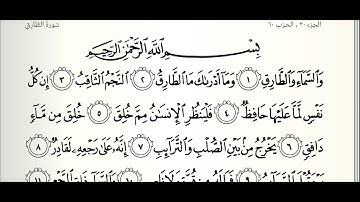 الجزء ٣٠ ، الحزب ٦٠
سورة الطارق
بِسْمِ اللَّهِ الرَّحْمَٰنِ الرَّحِيمِ
وَالسَّمَاءِ وَالطَّارِقِ ١ وَمَا أَدْرَىٰكَ مَا الطَّارِقُ ٢ النَّجْمُ الثَّاقِبُ ٣ إِن كُلُّ
نَفْسٍ لَّمَّا عَلَيْهَا حَافِظٌ ٤ فَلْيَنظُرِ الْإِنسَٰنُ مِمَّ خُلِقَ ٥ خُلِقَ مِن مَّاءٍ
دَافِقٍ ٦ يَخْرُجُ مِن بَيْنِ الصُّلْبِ وَالتَّرَائِبِ ٧ إِنَّهُ عَلَىٰ رَجْعِهِ لَقَادِرٌ ٨